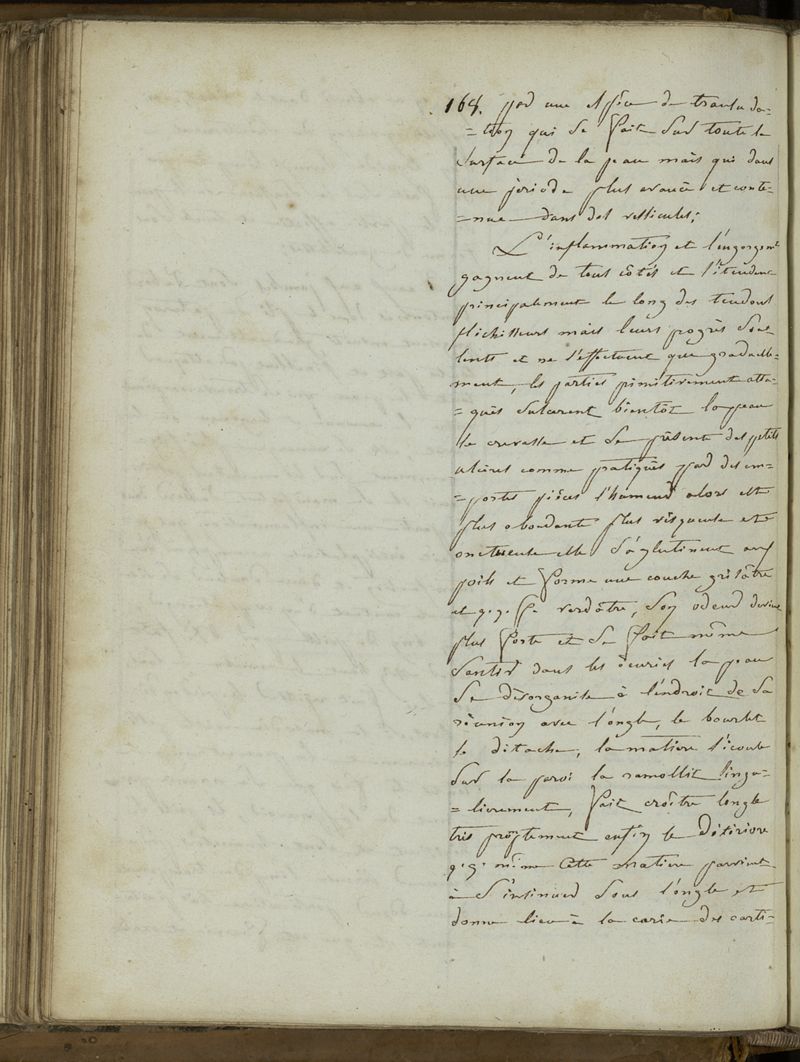 168. par une espèce de transuda-
= tion qui se fait sur toute la
surface de la peau mais qui dans
une période plus avancée est conte-
= nue dans des vessicules;
L'inflammation et l'engorgemt
gagnent de tous côtés et s'étendent
principalement le long des tendons
fléchisseurs mais leurs progrès sont
lents et ne s'effectuent que graduelle-
ment, les parties primitivement atta-
= quées s'ulcèrent bientôt la peau
se crevasse et se présente des petits
ulcères comme pratiqués par des em-
= portes pièces l'humeur alors est
plus abondante plus visqueuse et
onctueuse elle s'aglutinent aux
poils et forme une couche grisâtre
et q.q. fs verdâtre, son odeur devient
plus forte et se fait même
sentir dans les écuries la peau
se désorganise à l'endroit de sa
réunion avec l'ongle, le bourlet
se détache, la matière s'écoule
sur la paroi la ramollit singu-
= lièrement, fait croître l'ongle
très promptement enfin le détériore
q.q. même cette matière parvient
à s'insinuer sous l'ongle et
donne lieu à la carie des carti-